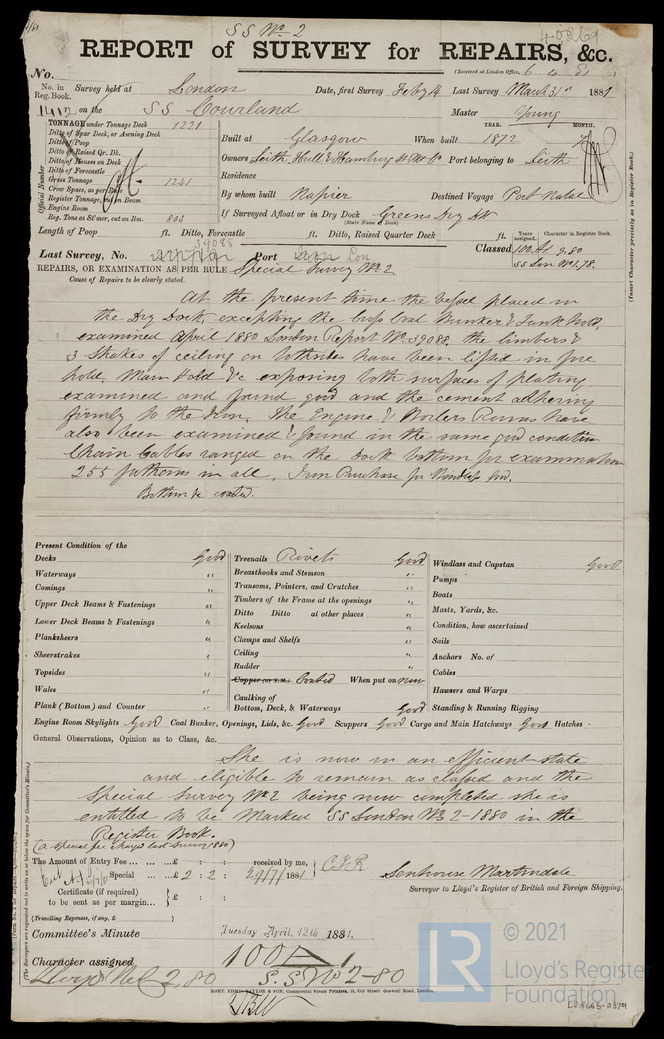 SS No 2
40269
REPORT of SURVEY for REPAIRS, &c.
(Received at London Office, 6. 4. 81)
No.
No. in Reg. Book. Survey held at London Date, first Survey Feby 14 Last Survey March 31st 1881
1412 on the SS Courland Master Young
TONNAGE under Tonnage Deck 1221
Ditto of Spar Deck, or Awning Deck
Ditto of Poop
Ditto of Raised Qr. Dk.
Ditto of Houses on Deck
Ditto of Forecastle
Gross Tonnage 1241
Crew Space, as per Rule
Register Tonnage, cut on Beam
Engine Room
Reg. Tons as St'mer, cut on Bm. 803
Official Number
YEAR. MONTH.
Built at Glasgow When built 1872
Owners Leith, Hull & Hamburg St Nt Co Port belonging to Leith
Residence
By whom built Napier Destined Voyage Port Natal
If Surveyed Afloat or in Dry Dock Greens Dry Dk
(State Name of Dock.)
Length of Poop ft. Ditto, Forecastle ft. Ditto, Raised Quarter Deck ft.
Years assigned. Character in Register Book.
Classed 100 A1 9.80
SS Lon No 1.78.
39088
Last Survey, No. Port Lon
REPAIRS, OR EXAMINATION AS PER RULE Special Survey No. 2
Cause of Repairs to be clearly stated.
(Insert Character precisely as in Register Book.)
At the present time the vessel placed in
the Dry Dock, excepting the Cross Coal Bunker & Tunk Hold,
examined April 1880 London Report No. 39088, the limbers &
3 Strakes of ceiling on both sides have been lifted in fore
hold, Main Hold &c exposing both surfaces of plating
examined and found good and the cement adhering
firmly to the iron, the Engine & Boilers Rooms have
also been examined & found in the same good condition
Chain Cables ranged on the dock bottom for examination
255 fathoms in all. Iron Purchase for Windlass good.
Bottom &c coated.
Present Condition of the
Decks Good
Waterways "
Comings "
Upper Deck Beams & Fastenings "
Lower Deck Beams & Fastenings "
Planksheers "
Sheerstrakes "
Topsides "
Wales "
Plank (Bottom) and Counter "
Treenails Rivets Good
Breasthooks and Stemson "
Transoms, Pointers, and Crutches "
Timbers of the Frame at the openings "
Ditto Ditto at other places "
Keelsons "
Clamps and Shelfs "
Ceiling "
Rudder "
Copper (or Y.M.) Coated When put on now
Caulking of Bottom, Deck, & Waterways Good
Windlass and Capstan Good
Pumps
Boats
Masts, Yards, &c.
Condition, how ascertained
Sails
Anchors No. of
Cables
Hawsers and Warps
Standing & Running Rigging
Engine Room Skylights Good Coal Bunker, Openings, Lids, &c. Good Scuppers Good Cargo and Main Hatchways Good Hatches
General Observations, Opinion as to Class, &c.
She is now in an efficient state
and eligible to remain as classed and the
Special Survey No. 2 being now completed she is
entitled to be Marked SS London No. 2-1880 in the
Register Book.
(a special fee charged last survey 1880)
The Amount of Entry Fee ... £ : : received by me,
Special ... £ 2 : 2 : 29/7/1881
Certificate (if required) to be sent as per margin... £ : :
(Travelling Expenses, if any, £ )
Senhouse Martindale
Surveyor to Lloyd's Register of British and Foreign Shipping.
Committee's Minute Tuesday April 12th 1881.
Character assigned 100A1
Lloyds 2,80 S.S No 2-80
LR
© 2021
Lloyd's Register
Foundation